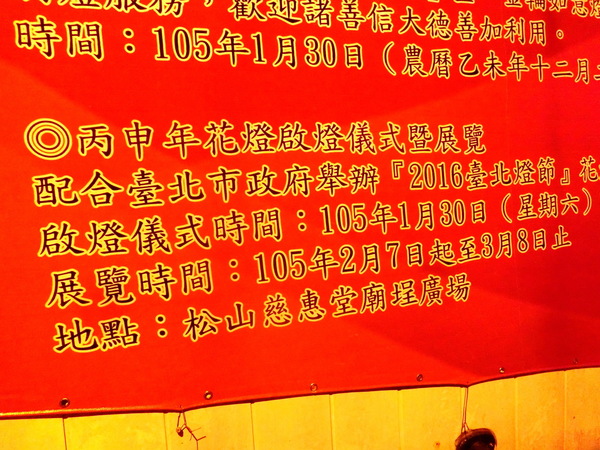 燈服務，歡迎諸善信大德善加利用。
時間：105年1月30日（農曆乙未年十二月
◎丙申年花燈啟燈儀式暨展覽
配合臺北市政府舉辦『2016臺北燈節』花
啟燈儀式時間：105年1月30日（星期六）
展覽時間：105年2月7日起至3月8日止
地點：松山慈惠堂廟埕廣場